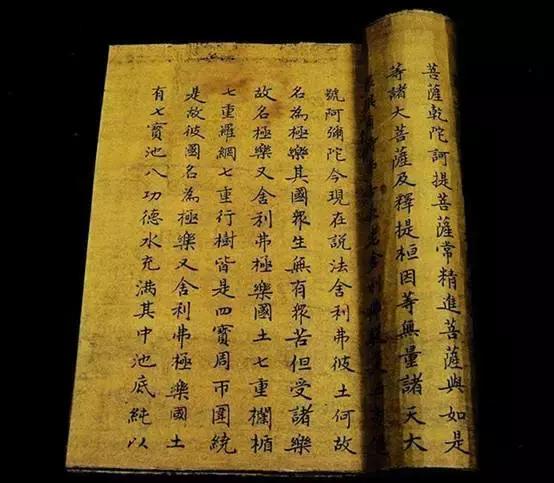 菩薩乾陀訶提菩薩常精進菩薩與如是
等諸大菩薩及釋提桓因等無量諸天大
舍利弗
號阿彌陀今現在說法舍利弗彼土何故
名為極樂其國眾生無有眾苦但受諸樂
故名極樂又舍利弗極樂國土七重欄楯
七重羅網七重行樹皆是四寶周帀圍繞
是故彼國名為極樂又舍利弗極樂國土
有七寶池八功德水充滿其中池底純以